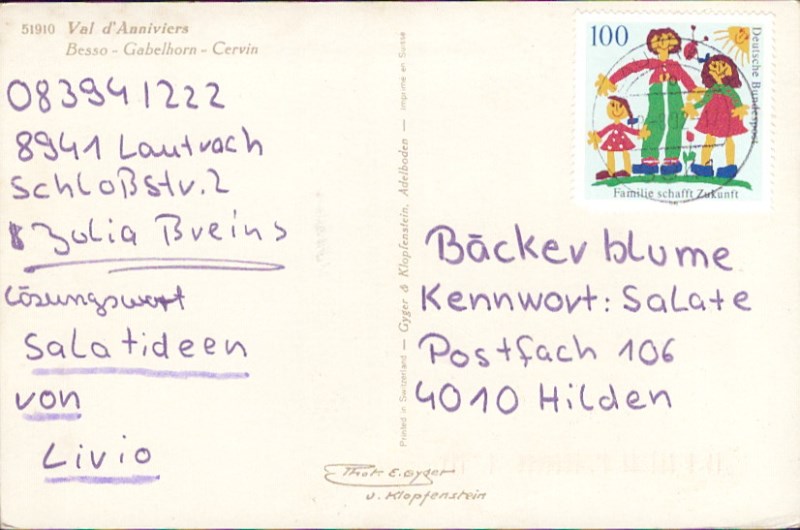 51910 Val d'Anniviers
Besso - Gabelhorn - Cervin
083941222
8941 Lautrach
Schloßstr. 2
Julia Breins
Lösungswort
Salatideen
von
Livio
Printed in Switzerland — Gyger & Klopfenstein, Adelboden — Imprimé en Suisse
Phot. E. Gyger
u. Klopfenstein
100
Deutsche Bundespost
Familie schafft Zukunft
Bäckerblume
Kennwort: Salate
Postfach 106
4010 Hilden